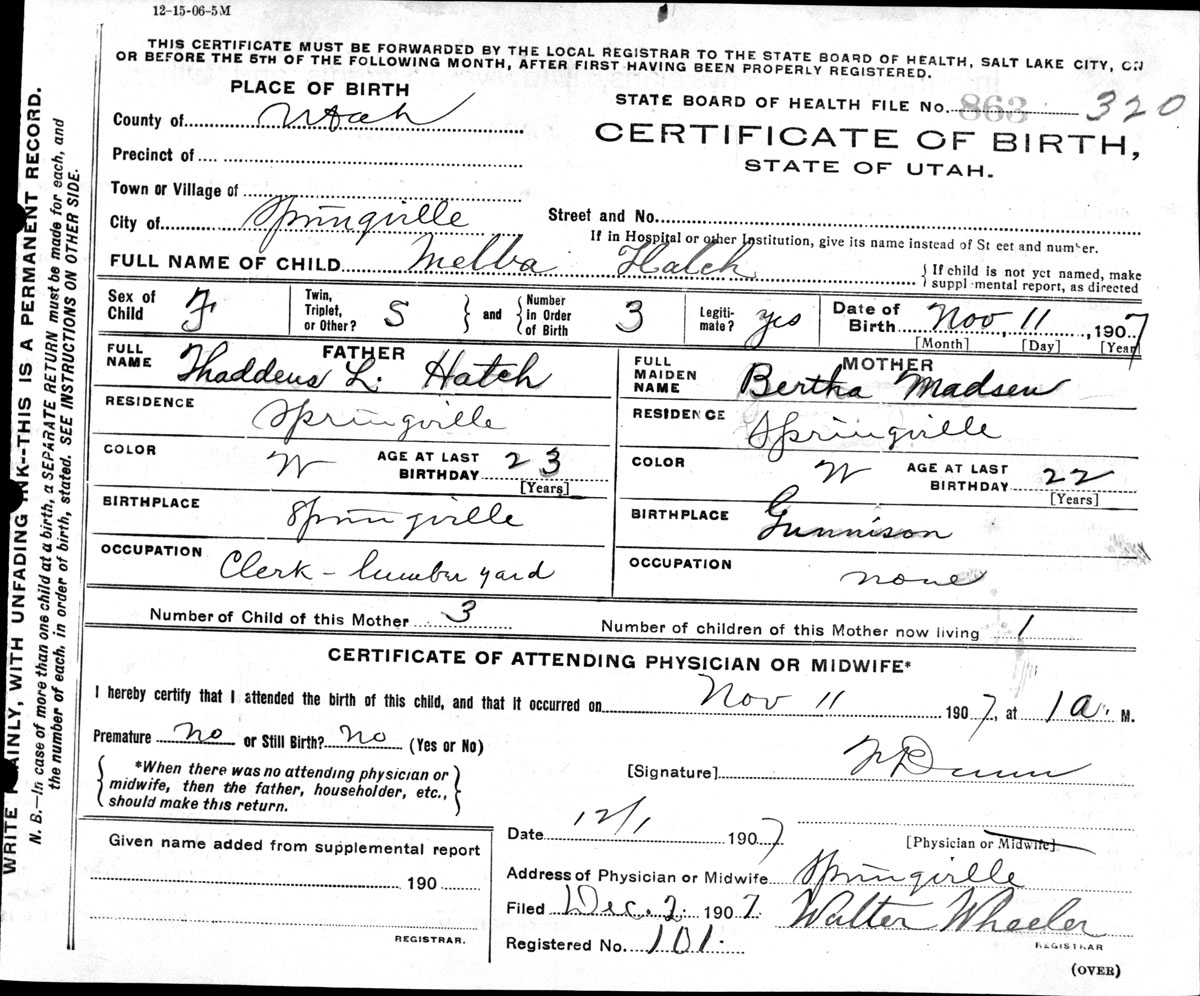 12-15-06-5M
THIS CERTIFICATE MUST BE FORWARDED BY THE LOCAL REGISTRAR TO THE STATE BOARD OF HEALTH, SALT LAKE CITY, ON
OR BEFORE THE 5TH OF THE FOLLOWING MONTH, AFTER FIRST HAVING BEEN PROPERLY REGISTERED.
PLACE OF BIRTH
STATE BOARD OF HEALTH FILE No. 863 320
County of Utah
CERTIFICATE OF BIRTH,
STATE OF UTAH.
Precinct of
Town or Village of
City of Springville
Street and No.
If in Hospital or other Institution, give its name instead of St eet and number.
FULL NAME OF CHILD Melba Hatch
{ If child is not yet named, make
suppl mental report, as directed
Sex of Child F
Twin, Triplet, or Other? S } and { Number in Order of Birth 3
Legiti-mate? yes
Date of Birth Nov, 11, 1907
[Month] [Day] [Year]
FATHER
FULL NAME Thaddeus L. Hatch
RESIDENCE Springville
COLOR W AGE AT LAST BIRTHDAY 23
[Years]
BIRTHPLACE Springville
OCCUPATION Clerk - lumber yard
MOTHER
FULL MAIDEN NAME Bertha Madsen
RESIDENCE Springville
COLOR W AGE AT LAST BIRTHDAY 22
[Years]
BIRTHPLACE Gunnison
OCCUPATION none
Number of Child of this Mother 3
Number of children of this Mother now living 1
CERTIFICATE OF ATTENDING PHYSICIAN OR MIDWIFE*
I hereby certify that I attended the birth of this child, and that it occurred on Nov 11 1907, at 1 a. M.
Premature no or Still Birth? no (Yes or No)
{ *When there was no attending physician or
midwife, then the father, householder, etc.,
should make this return. }
[Signature] Dunn
Date 12/1 1907
[Physician or Midwife]
Given name added from supplemental report
190
REGISTRAR.
Address of Physician or Midwife Springville
Filed Dec. 2. 1907. Walter Wheeler
REGISTRAR
Registered No. 101.
(OVER)
WRITE PLAINLY, WITH UNFADING INK--THIS IS A PERMANENT RECORD.
N. B.—In case of more than one child at a birth, a SEPARATE RETURN must be made for each, and
the number of each. in order of birth, stated. SEE INSTRUCTIONS ON OTHER SIDE.